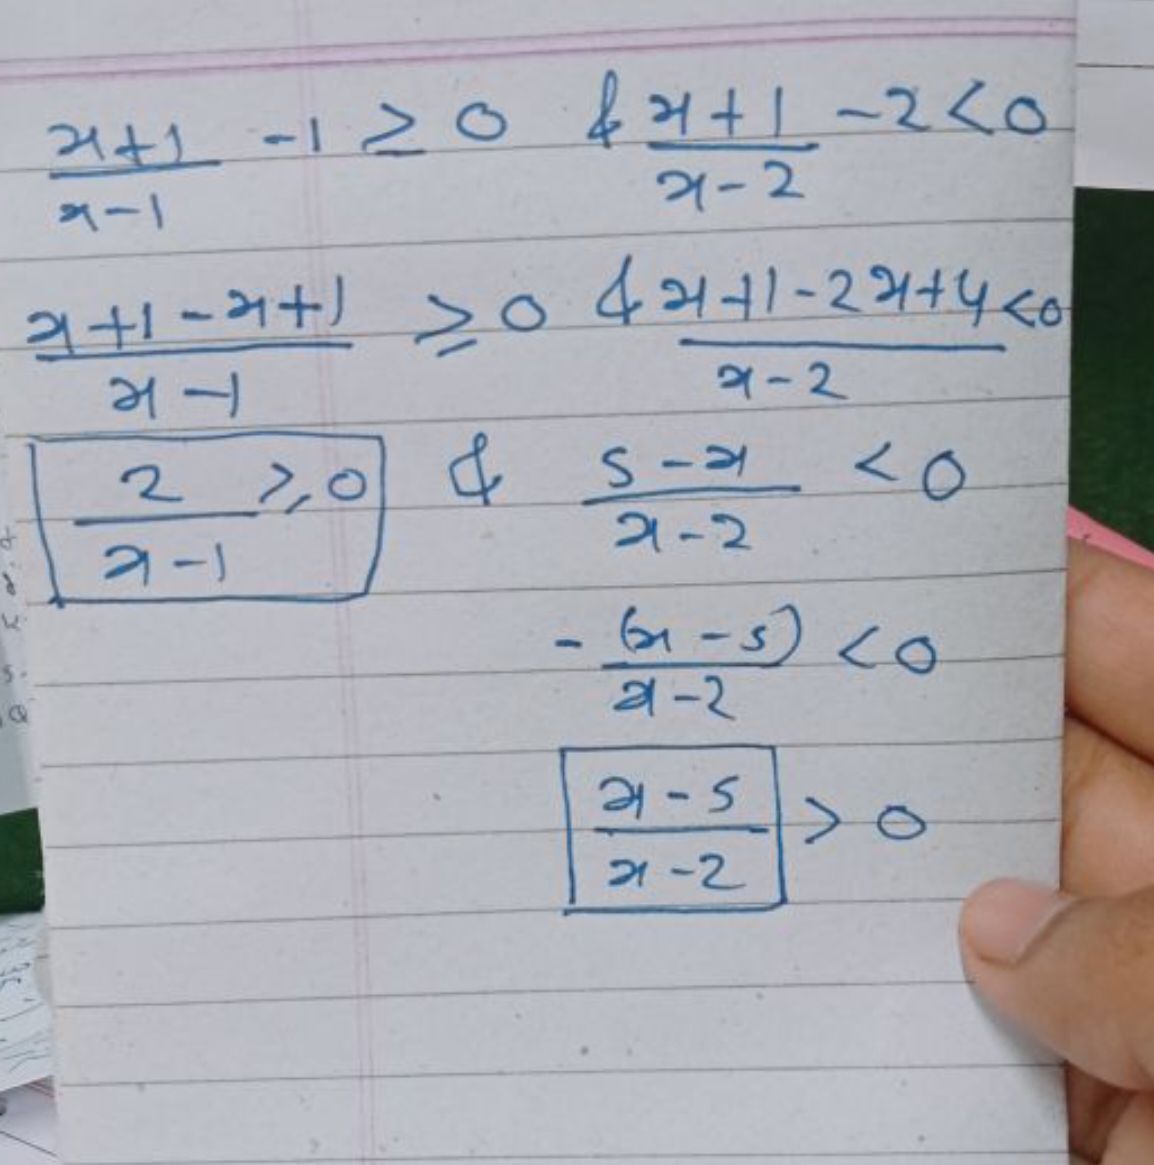 x+1/x-1 -1 ≥ 0 & x+1/x-2 -2 < 0
x+1-x+1/x-1 ≥ 0 & x+1-2x+4/x-2 < 0
2/x-1 ≥ 0 & 5-x/x-2 < 0
-(x-5)/x-2 < 0
x-5/x-2 > 0